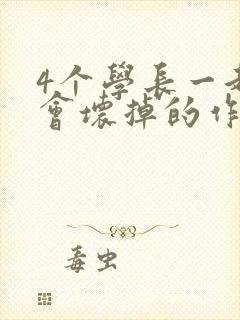 4个學長一
會壞掉的作
毒虫